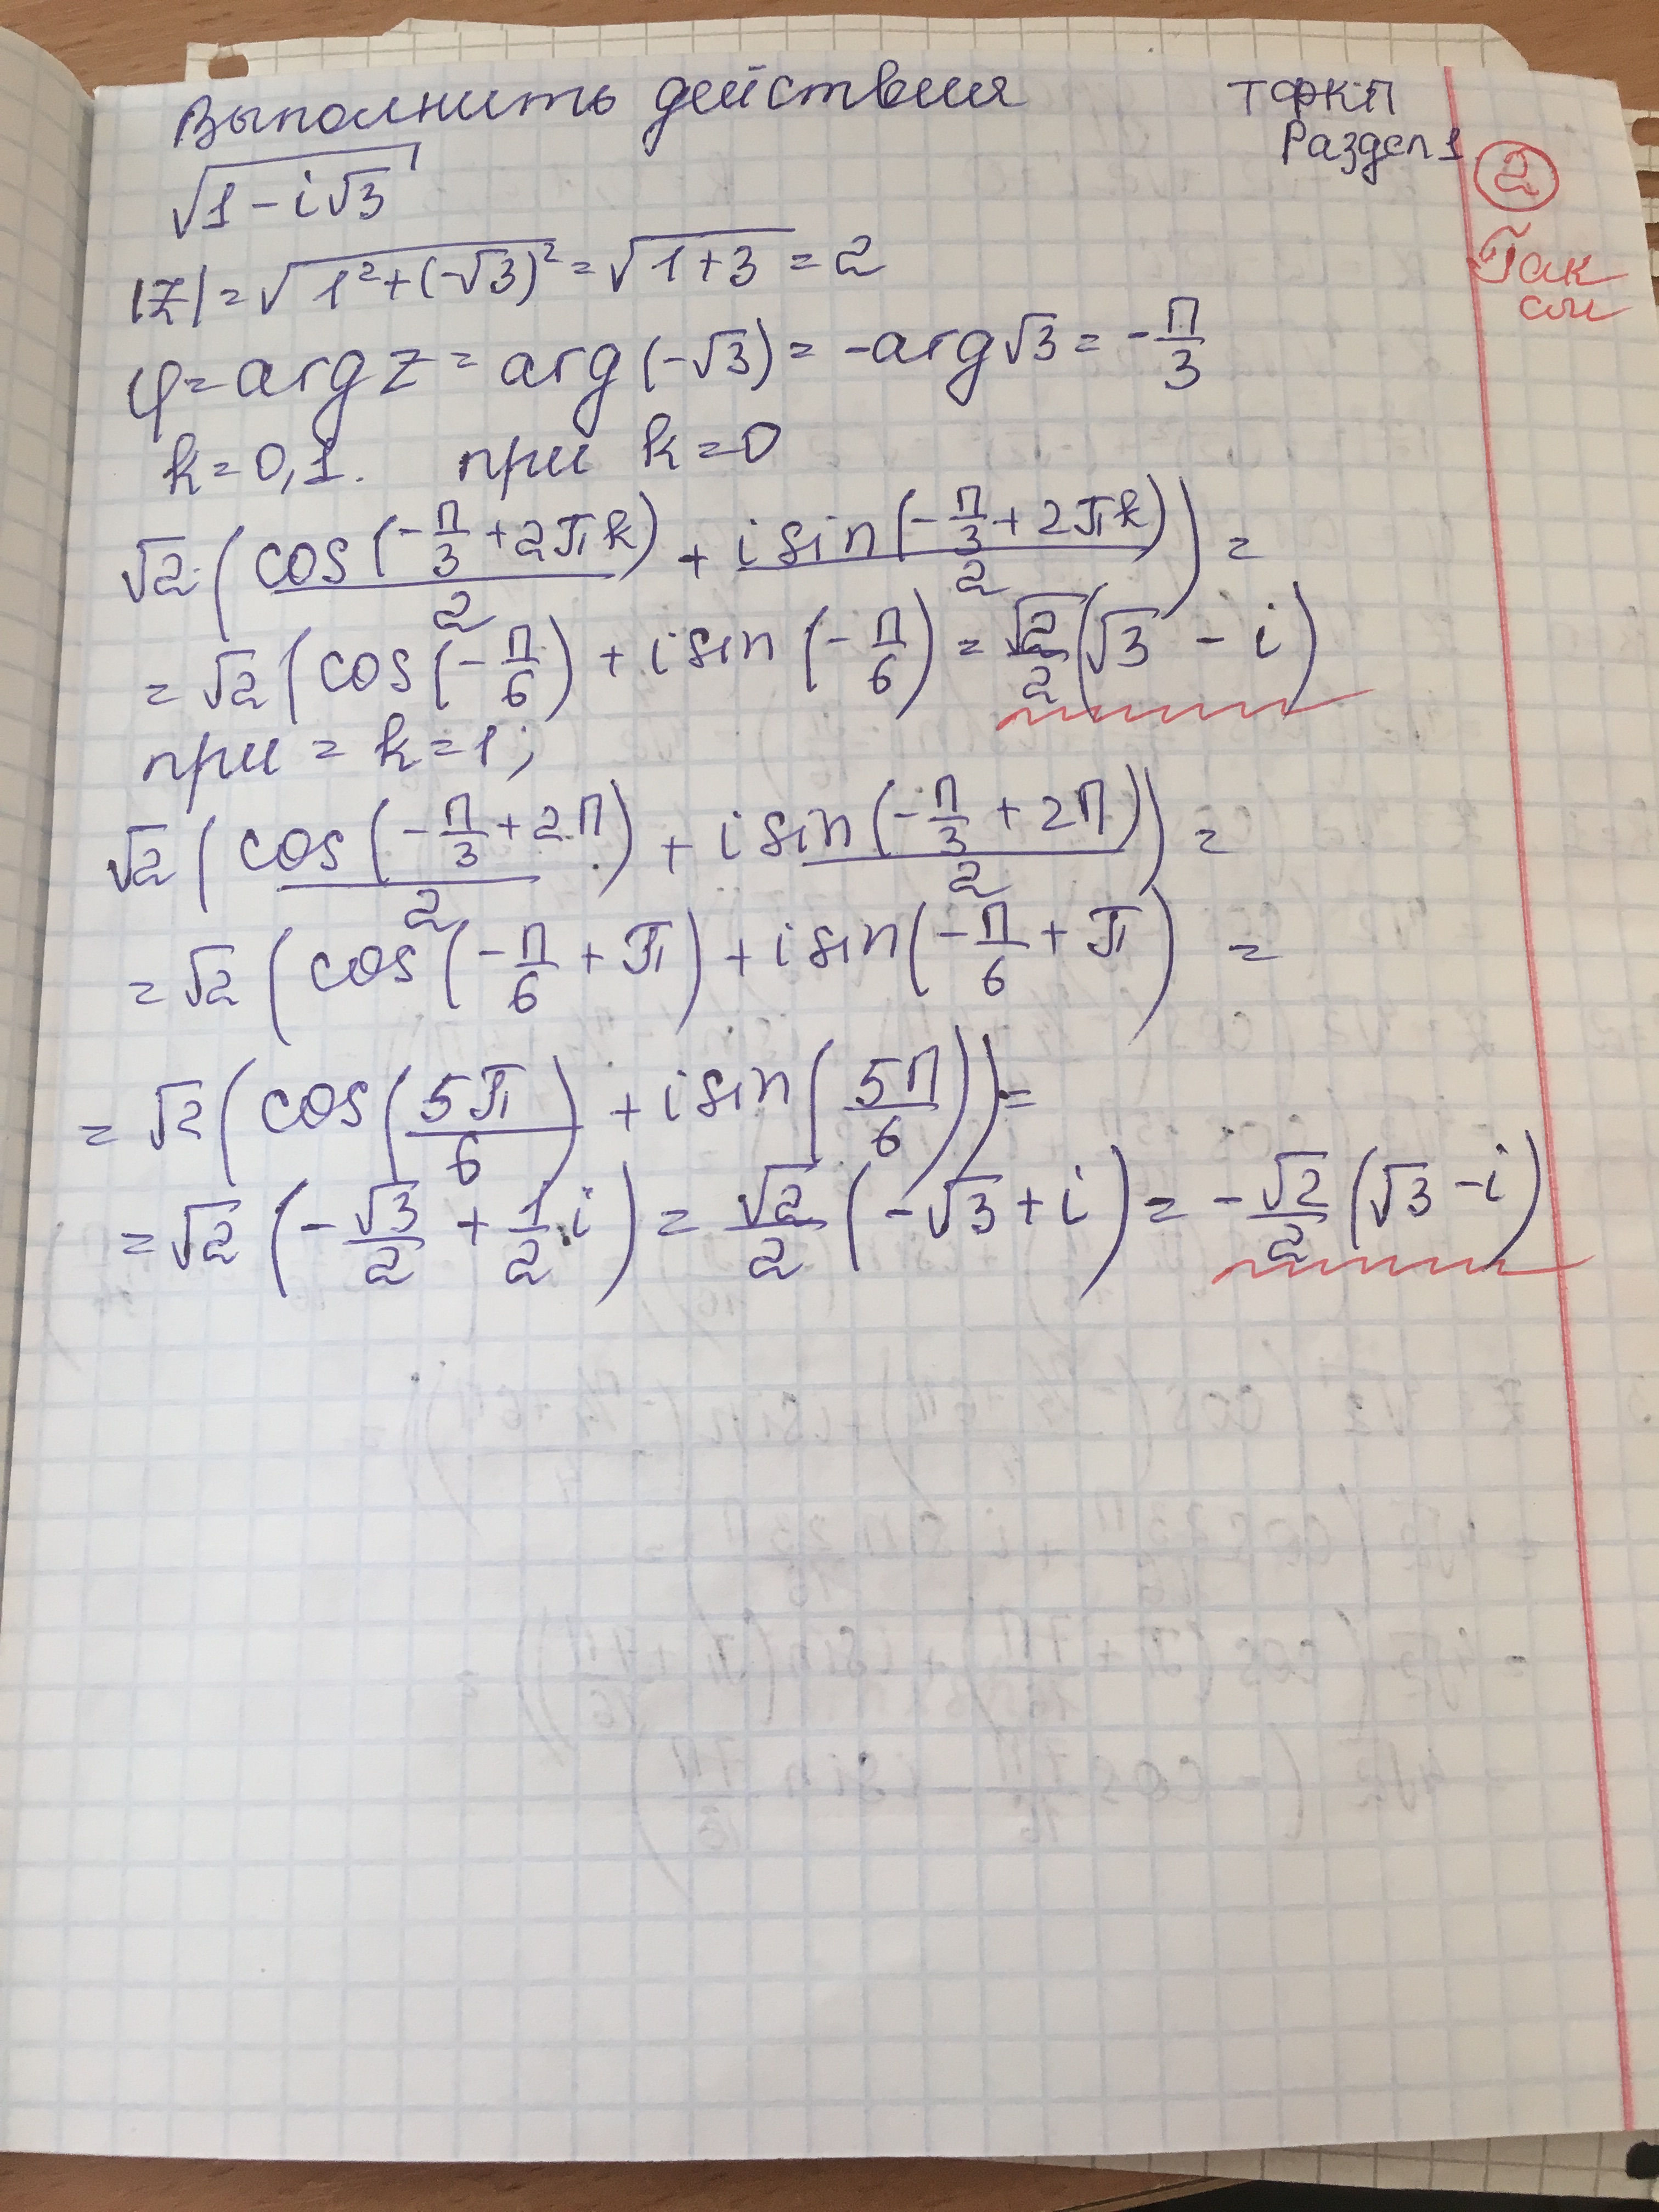 Выполнить действия
ТФКП
Раздел 1
2
√(1 - i√3)
|z| = √(1² + (-√3)²) = √(1+3) = 2
φ = arg z = arg(-√3) = -arg√3 = -π/3
k=0,1. при k=0
√2 (cos(-π/3 + 2πk)/2 + i sin(-π/3 + 2πk)/2) =
= √2 (cos(-π/6) + i sin(-π/6) = √2/2 (√3 - i)
при = k=1;
√2 (cos(-π/3 + 2π)/2 + i sin(-π/3 + 2π)/2) =
= √2 (cos(-π/6 + π) + i sin(-π/6 + π) =
= √2 (cos(5π/6) + i sin(5π/6)) =
= √2 (-√3/2 + 1/2 i) = √2/2 (-√3 + i) = -√2/2 (√3 - i)